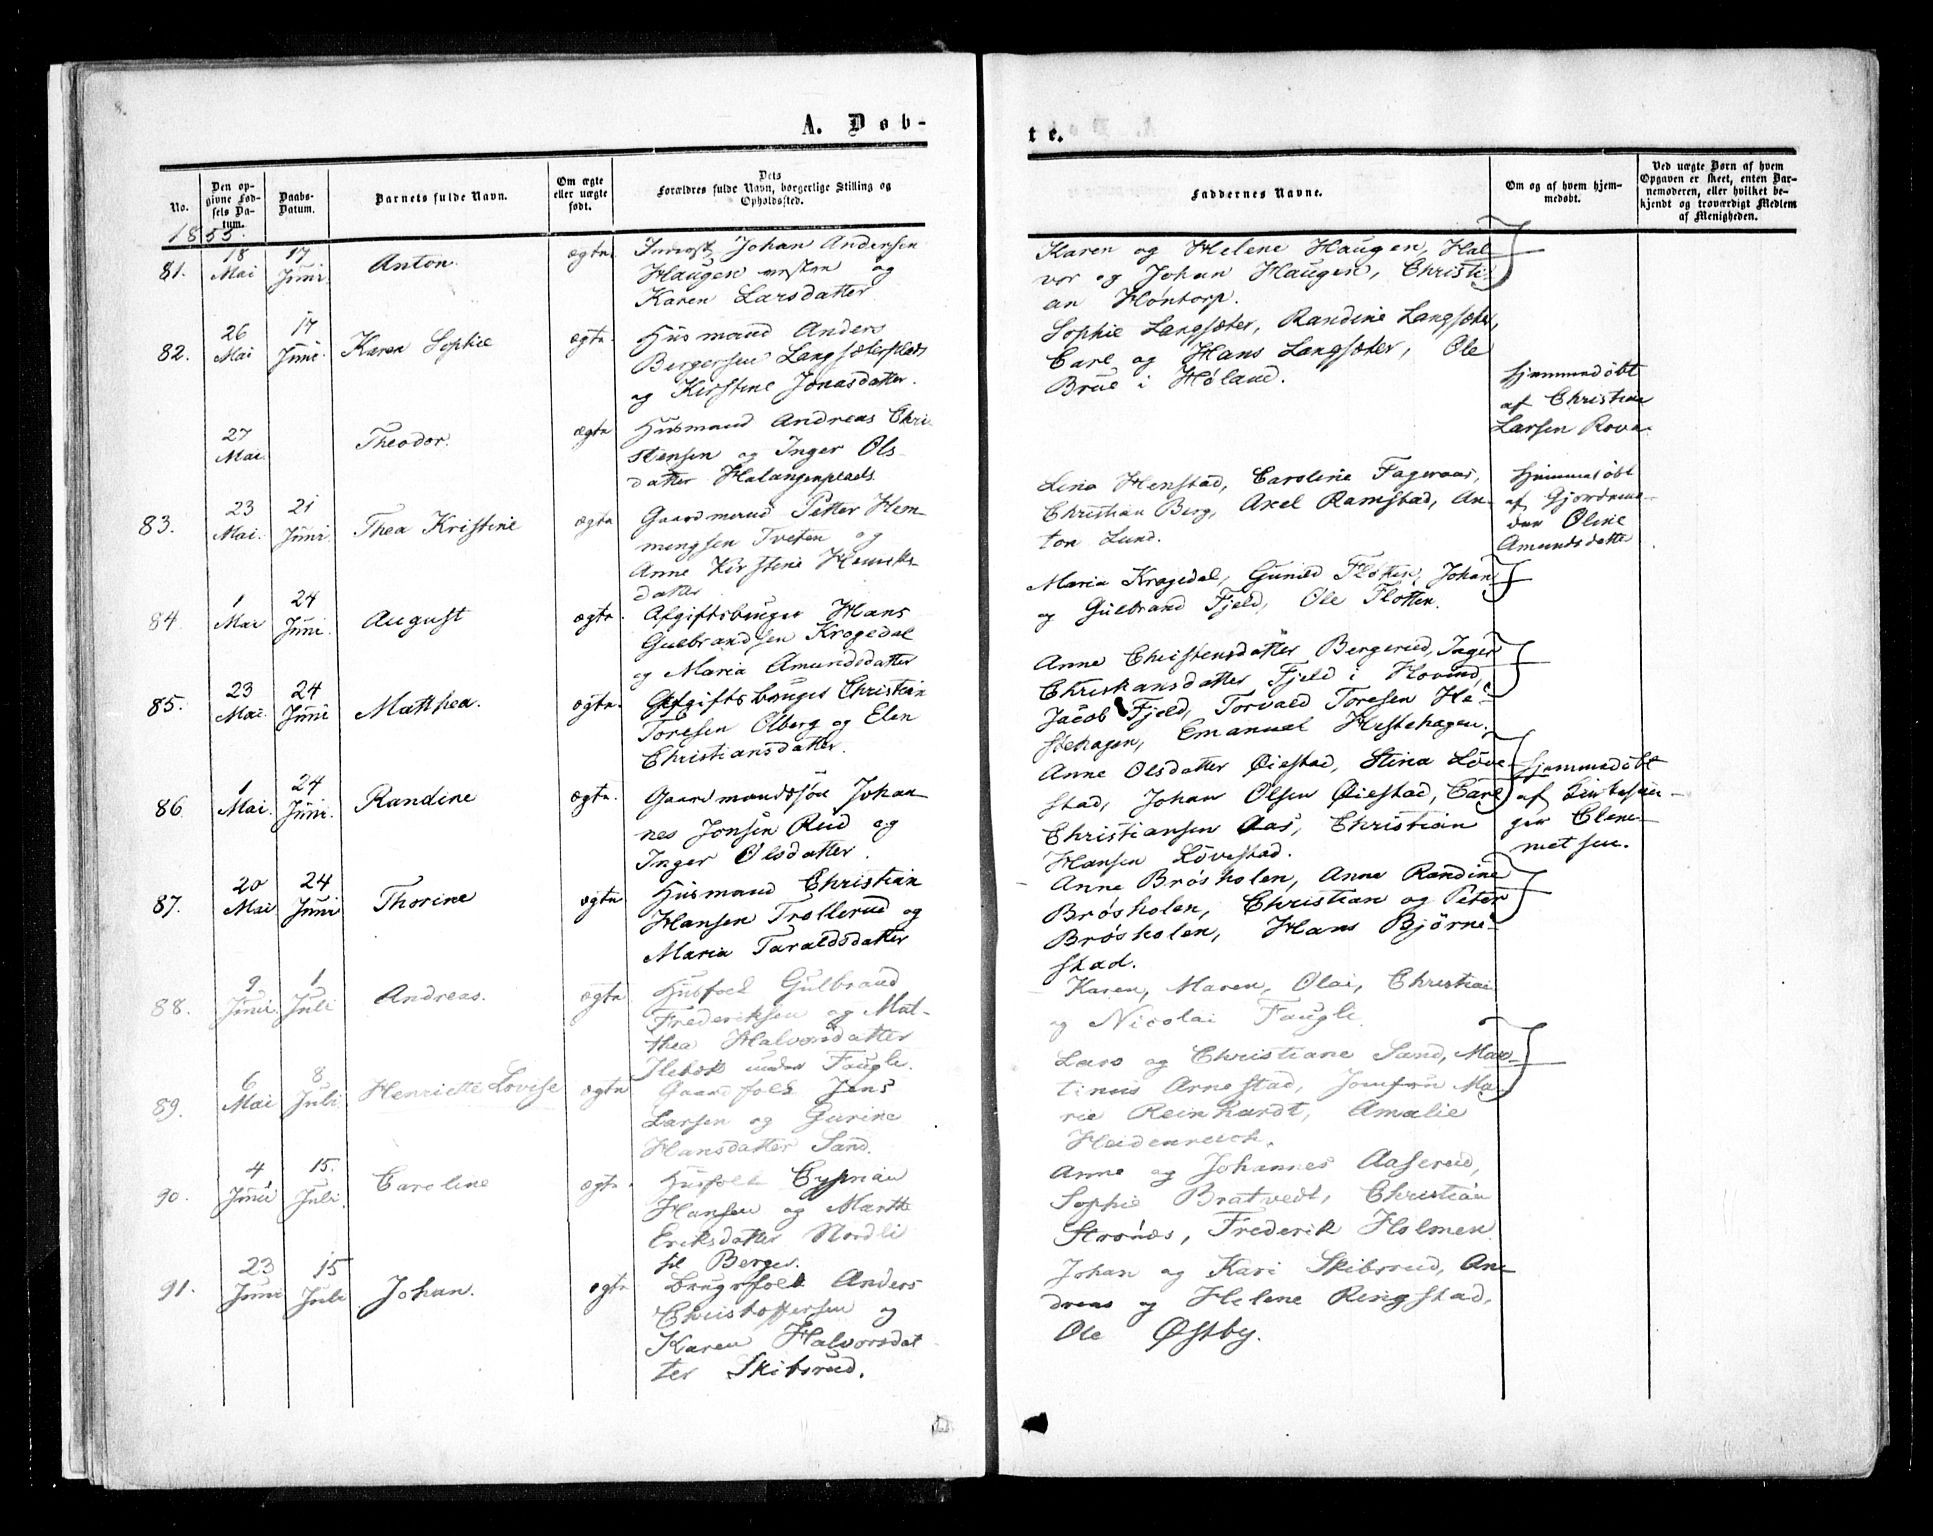 A. Døb-
No.
Den opgivne Fødsels Datum.
Daabs-Datum.
Barnets fulde Navn.
Om ægte eller uægte født.
Dets Forældres fulde Navn, borgerlige Stilling og Opholdssted.
1855.
81.
18 Mai
17 Juni
Anton.
ægte
Johan Andersen
Haugen og
Karen Larsdatter
82.
26 Mai
17 Juni
Karen Sophie
ægte
Husmand Anders
Bergersen Langsæterplads
og Kirstine Jonasdatter.
27 Mai.
Theodor.
ægte
Husmand Andreas Chri-
stensen og Inger Ols-
datter Halangenplads
83.
23 Mai.
21 Juni
Thea Kristine
ægte
Gaardmand Petter Hem-
mengsen Tveten og
Anne Kirstine
datter
84.
1 Mai
24 Juni.
August
ægte.
Afgiftsbruger Hans
Gulbrandsen Krogedal
og Maria Amundsdatter
85.
23 Mai.
24 Juni
Matthea.
ægte.
Afgiftsbruger Christian
Toresen Olberg og Elen
Christiansdatter.
86
1 Mai.
24 Juni.
Randine
ægte.
Gaardmandssøn Johan-
nes Jonsen Rud og
Inger Olsdatter.
87.
20 Mai
24 Juni
Thorine
ægte
Husmand Christian
Hansen Trollerud og
Maria Taraldsdatter
88.
9 Juni
1 Juli
Andreas.
ægte
Husfolk Gulbrand
Frederiksen og Mat-
thea Halvorsdatter
under Faugli.
89.
6 Mai
8 Juli
Henriette Lovise
ægte
Gaardfolk Jens
Larsen og Gurine
Hansdatter Sand.
90.
4 Juni
15. Juli.
Caroline
ægte.
Husfolk Cyprian
Hansen og Marthe
Eriksdatter Nordli
Berger.
91.
23 Juni
15 Juli
Johan.
ægte
Brugsfolk Anders
Christoffersen og
Karen Halvorsdat
ter Skibsrud.
te.
Faddernes Navne.
Om og af hvem hjemmedøbt.
Ved uægte Børn af hvem Opgaven er skeet, enten Barnemoderen, eller hvilket bekjendt og troværdigt Medlem af Menigheden.
Karen og Helene Haugen, Hal-
vor og Johan Haugen, Christi-
an Höntorp.
Sophie Langsæter, Randine Langsæter,
Carl og Hans Langsæter, Ole
Brue i Høland.
Hjemmedøbt
af Christian
Larsen
Lina Henstad, Caroline Fageraas,
Christian Berg, Axel Ramstad, An-
ton Lund.
Hjemmedøbt
af Gjordemo-
der Oline
Amundsdatter
Maria Krogedal, Gunild Flotten, Johan
og Gulbrand Fjeld, Ole Flotten.
Anne Christensdatter Bergerud, Inger
Christiansdatter Fjeld i Hovind,
Jacob Fjeld, Torvald Toresen He-
stehagen, Emanuel Hestehagen.
Anne Olsdatter Øiestad, Stina Löve-
stad, Johan Olsen Øiestad, Carl
Christiansen Aas, Christian
Hansen Lövestad.
Hjemmedøbt
af
ger Cleme-
metsen.
Anne Brøsholen, Anne Randine
Brøsholen, Christian og Peter
Brøsholen, Hans Bjørne-
stad.
Karen, Maren, Olai, Christian
og Nicolai Faugli.
Lars og Christiane Sand, Mar-
tinus Arnestad, Jomfru Ma-
rie Reinhardt, Amalie
Heidenreich.
Anne og Johannes Aaserud,
Sophie Bratvedt, Christian
Strønæs, Frederik Holmen
Johan og Kari Skibsrud, An-
dreas og Helene Ringstad,
Ole Østby.